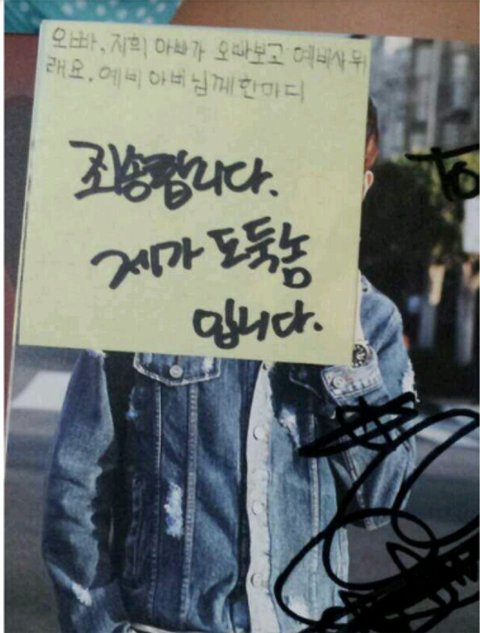 오빠, 저희 아빠가 오빠보고 예비사위
래요. 예비 아버님께 한마디
죄송합니다.
제가 도둑놈
입니다.
To